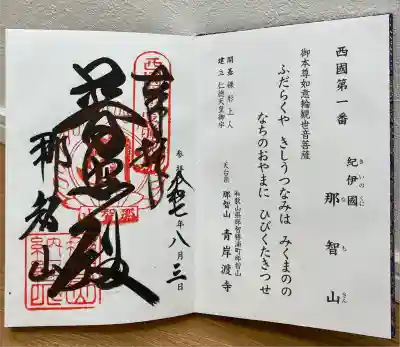 西國第一番
紀伊國 那智山
きいのくに なちさん
御本尊如意輪観世音菩薩
ふだらくや きしうつなみは みくまのの
なちのおやまに ひびくたきつせ
開基 裸形上人
建立 仁徳天皇御宇
天台宗
和歌山県那智勝浦町那智山
那智山 青岸渡寺
奉拝
参拝 令和七年八月三日
普照殿
那智山